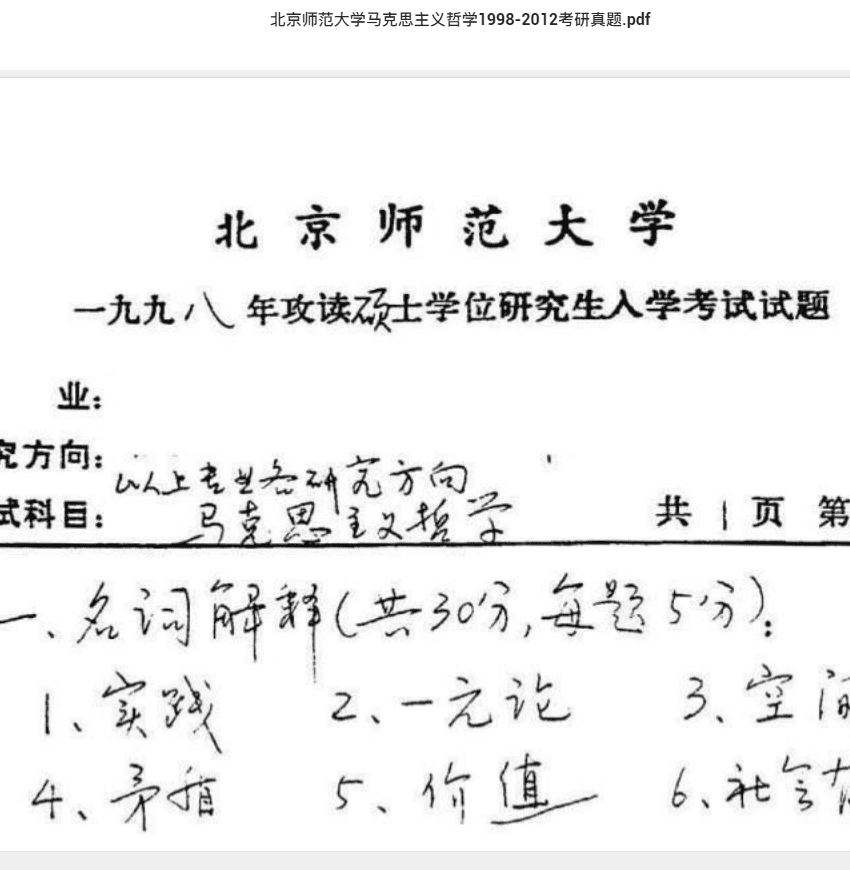 北京师范大学马克思主义哲学1998-2012考研真题.pdf
北京师范大学
一九九八年攻读硕士学位研究生入学考试试题
业:
究方向: 以上专业各研究方向
试科目: 马克思主义哲学 共1页 第
一、名词解释(共30分,每题5分):
1、实践 2、一元论 3、空间
4、矛盾 5、价值 6、社会